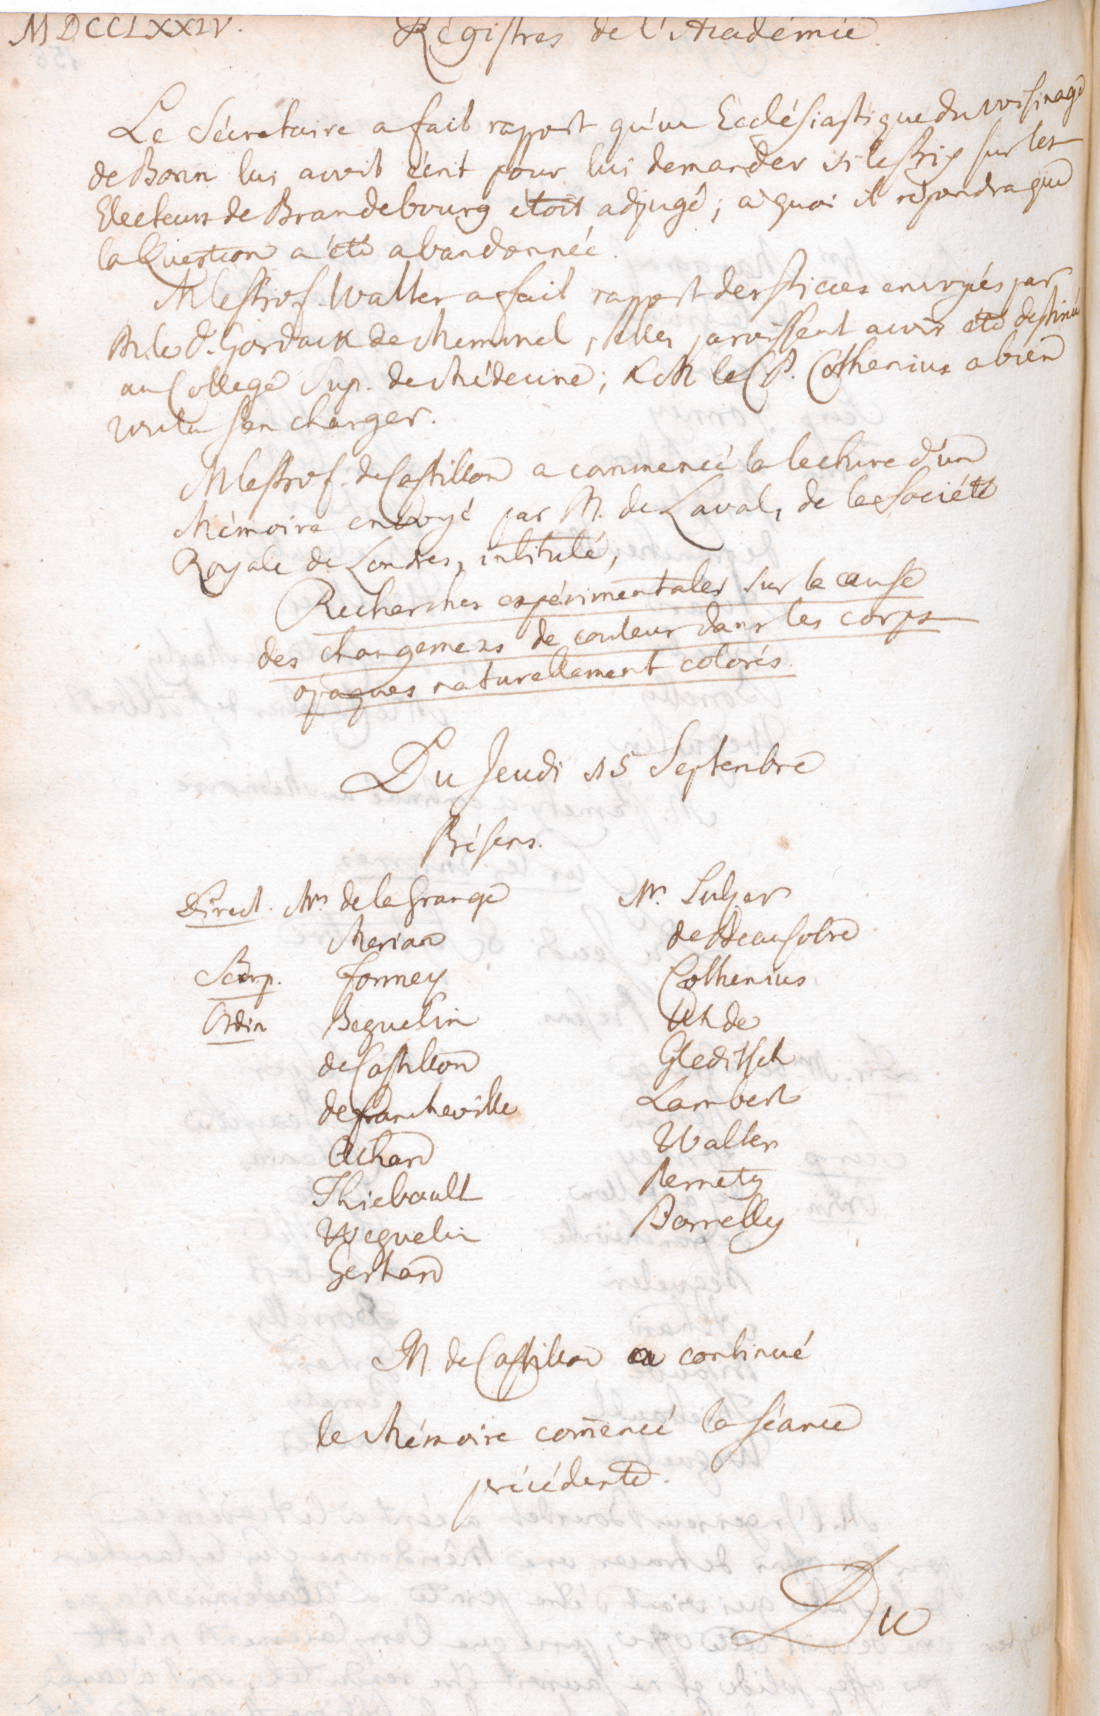 MDCCLXXIV. Régistres de l'Académie.
Le Sécretaire a fait rapport qu'un Ecclésiastique du voisinage
de Bonn lui avoit écrit pour lui demander si le Prix sur les
Electeurs de Brandebourg étoit adjugé; à quoi il répondra que
la Question a été abandonnée.
M le Prof. Walter a fait rapport des Pièces envoyées par
M. le D. de Memmel, elles paroissent avoir été destinées
au College Sup. de Médecine; & M le C. P. Cothenius a bien
voulu s'en charger.
M le Prof. de Castillon a commencé la lecture d'un
Mémoire envoyé par M. de Laval, de la Société
Royale de Londres, intitulé,
Recherches expérimentales sur la cause
des changemens de couleur dans les corps
opaques naturellement colorés.
Du Jeudi 15 Septembre
Présens.
Direct. Mrs de la Grange Mr. Sulzer
Merian de Beausobre
Sécrp. Formey Cothenius
Ordin Beguelin Uhde
de Castillon Gleditsch
de Francheville Lambert
Achard Walter
Thiebault Pernety
Weguelin Borrelly
Gerhard
M. de Castillon a continué
le Mémoire com̄encé la séance
précédente.
Du